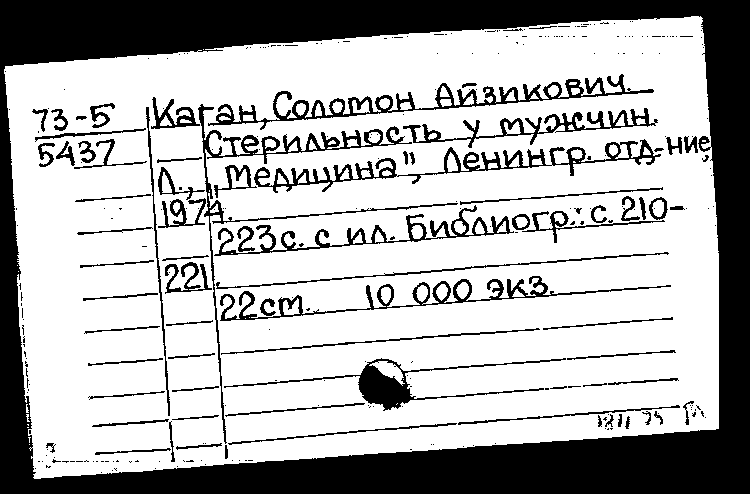 73-5 Каган, Соломон Айзикович.
5437 Стерильность у мужчин.
Л., "Медицина", Ленингр. отд-ние,
1974.
223с. с ил. Библиогр.: с. 210-
221.
22ст. 10 000 экз.